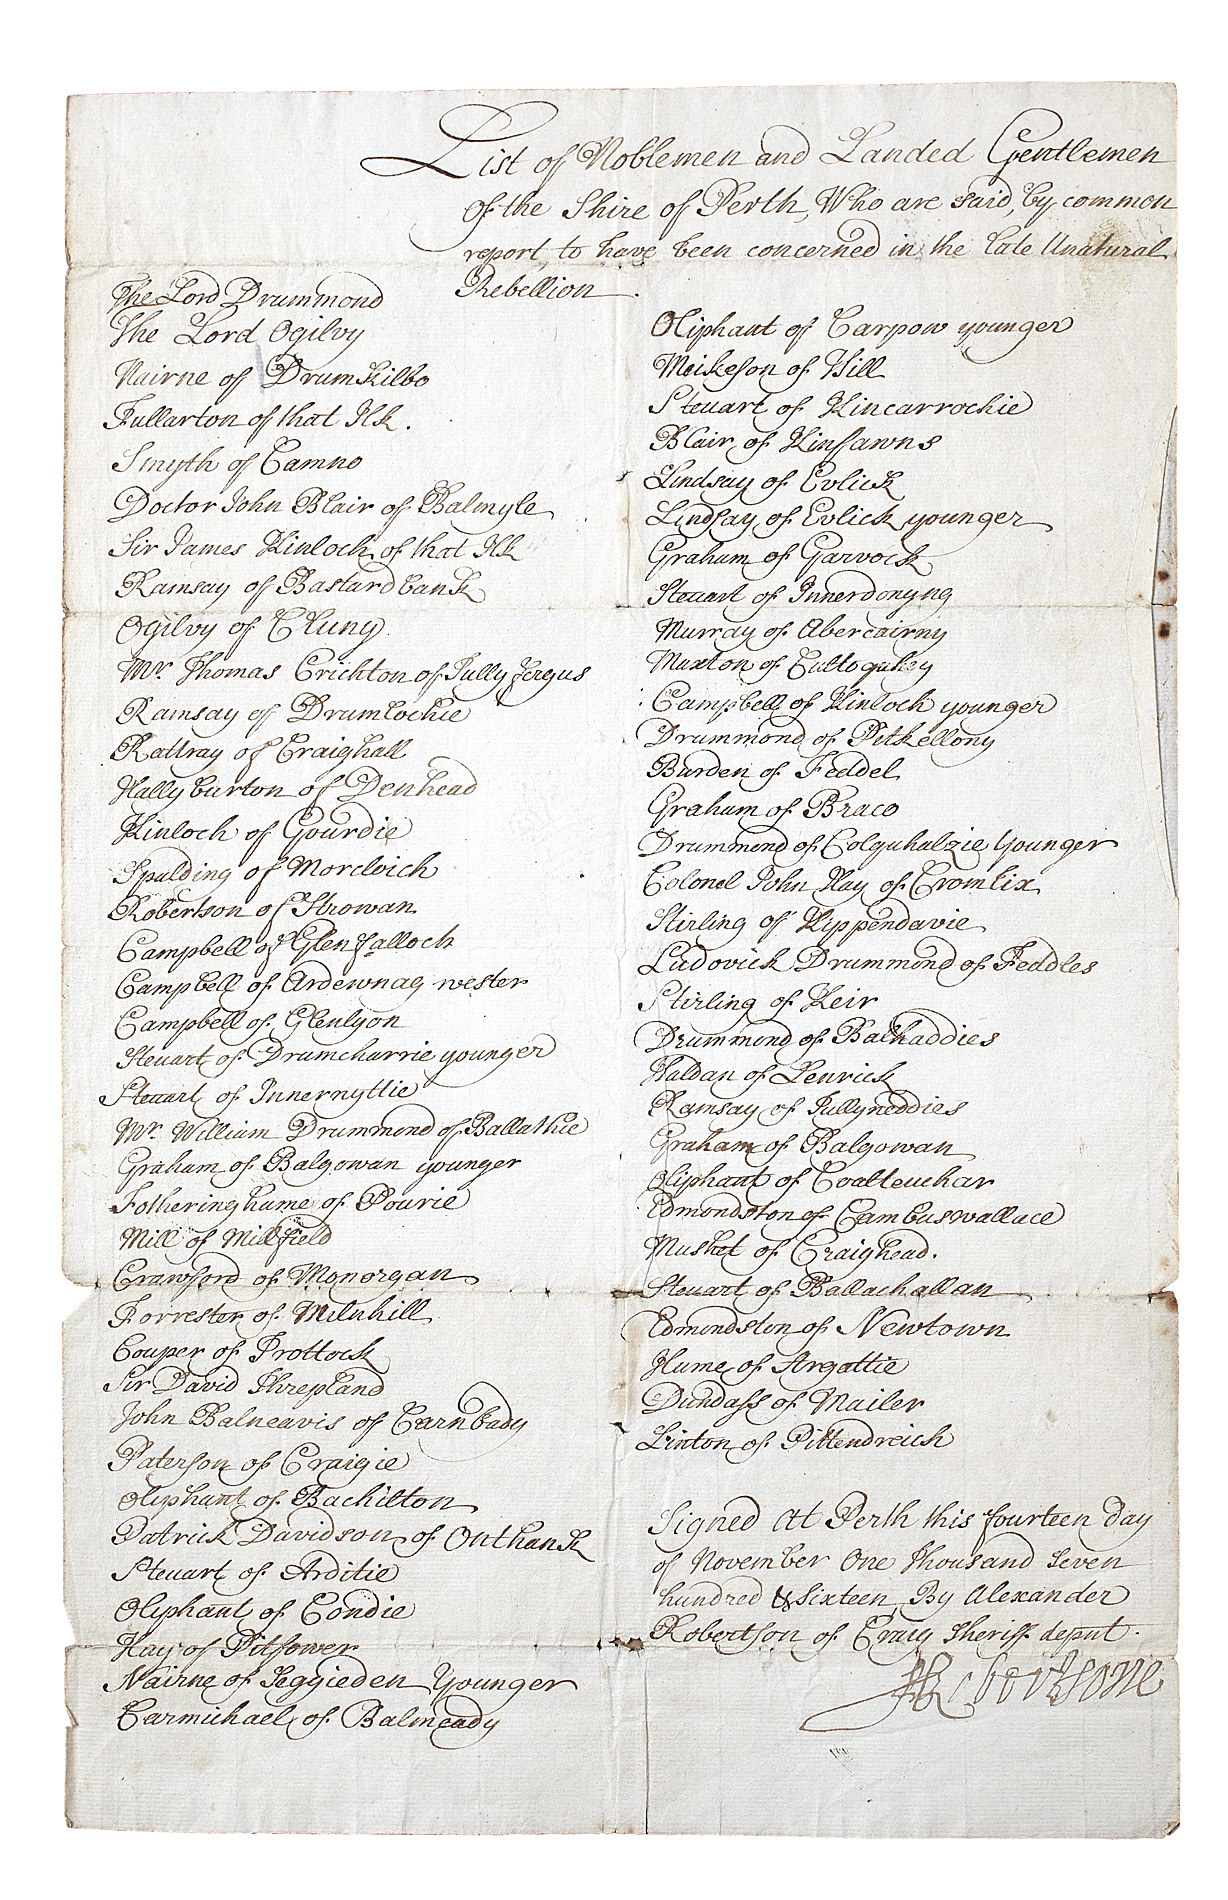 List of Noblemen and Landed Gentlemen
of the Shire of Perth, Who are said, by common
report, to have been concerned in the late Unatural
Rebellion.
The Lord Drummond
The Lord Ogilvy
Nairne of Drumkilbo
Fullarton of that Ilk.
Smyth of Camno
Doctor John Blair of Balmyle
Sir James Kinloch of that Ilk
Ramsay of Bastardbank
Ogilvy of Cluny
Mr. Thomas Crichton of Tullyfergus
Ramsay of Drumlochie
Rattray of Craighall
Hallyburton of Denhead
Kinloch of Gourdie
Spalding of Morclvich
Robertson of Strowan
Campbell of Glenfalloch
Campbell of Ardewnag wester
Campbell of Glenlyon
Steuart of Drumcharrie younger
Steuart of Innernyttie
Mr. William Drummond of Ballathie
Graham of Balgowan younger
Fotheringhame of Pourie
Mill of Millfield
Crawford of Monorgan
Forrester of Milnhill
Couper of Trottock
Sir David Threpland
John Balneavis of Carnbady
Paterson of Craigie
Oliphant of Bachilton
Patrick Davidson of Onthank
Steuart of Arditie
Oliphant of Condie
Hay of Pitfower
Nairne of Seggieden Younger
Carmichael of Balmeady
Oliphant of Carpow younger
Meikeson of Hill
Steuart of Kincarrochie
Blair of Kinfawns
Lindsay of Evlick
Lindsay of Evlick younger
Graham of Garvock
Steuart of Innerdonyng
Murray of Abercairny
Maxton of Cultoquhey
Campbell of Kinloch younger
Drummond of Pitkellony
Burden of Feddel
Graham of Braco
Drummond of Colquhalzie Younger
Colonel John Hay of Cromlix
Stirling of Kippendavie
Ludovick Drummond of Feddles
Stirling of Keir
Drummond of Balhaddies
Haldan of Lenrick
Ramsay of Tullyneddies
Graham of Balgowan
Oliphant of Coalteuchar
Edmondston of Cambuswallace
Mushet of Craighead.
Steuart of Ballachallan
Edmondston of Newtown
Hume of Argattie
Dundass of Mailer
Linton of Pittendreich
Signed At Perth this fourteen Day
of November One Thousand Seven
hundred & Sixteen By Alexander
Robertson of Craig Sheriff deput.
ARobertsone